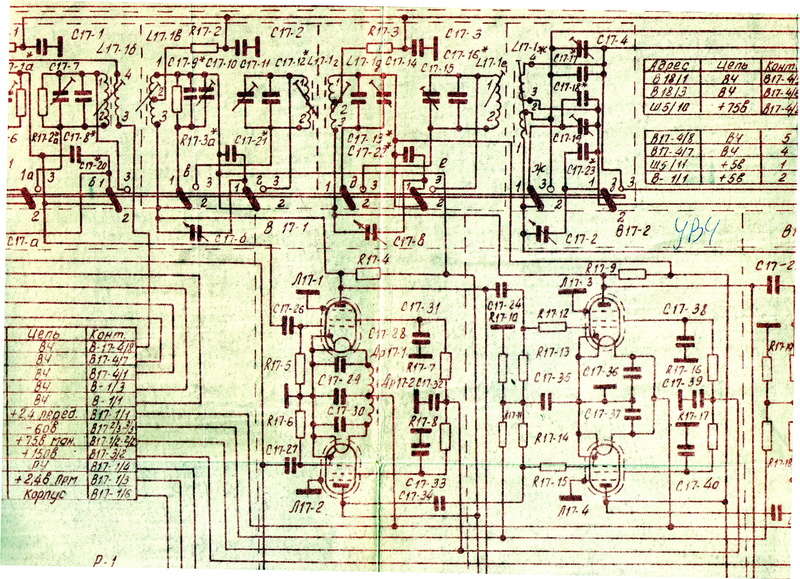 С17-1
L17-1б
L17-1в
R17-2
С17-2
R17-3
С17-3
С17-4
С17-7
С17-9*
С17-10
С17-11
С17-12*
С17-14
С17-15
С17-16*
С17-8*
R17-3а*
С17-21*
С17-20
С17-23*
С17-а
С17-б
В 17-1
С17-в
С17-2
В17-2
УВЧ
Адрес Цепь Конт
В 18/1 ВЧ В17-4/
В 18/3 ВЧ В17-4/
Ш5/10 +75В В17-4/
В17-4/8 ВЧ 5
В17-4/7 ВЧ 4
Ш5/11 +5В 1
В-1/1 +5В 2
Л17-1
R17-4
С17-24
R17-10
Л17-3
R17-9
С17-26
С17-31
С17-28
R17-12
С17-38
R17-5
С17-29
Др17-1
R17-7
Др17-2
С17-32
R17-13
С17-35
С17-36
R17-16
С17-39
R17-6
С17-30
R17-8
С17-37
R17-17
R17-14
С17-27
С17-33
С17-34
R17-15
С17-40
Л17-2
Л17-4
Цепь Конт.
ВЧ В-17-4/8
ВЧ В17-4/7
ВЧ В17-4/1
ВЧ В-1/3
ВЧ В-1/1
+2.4 перед. В17-1/1
-60В
+75В ман.
+150В В17-3/2
ПЧ В17-1/4
+2,4В Прм В17-1/3
Корпус В17-1/6
Р-1